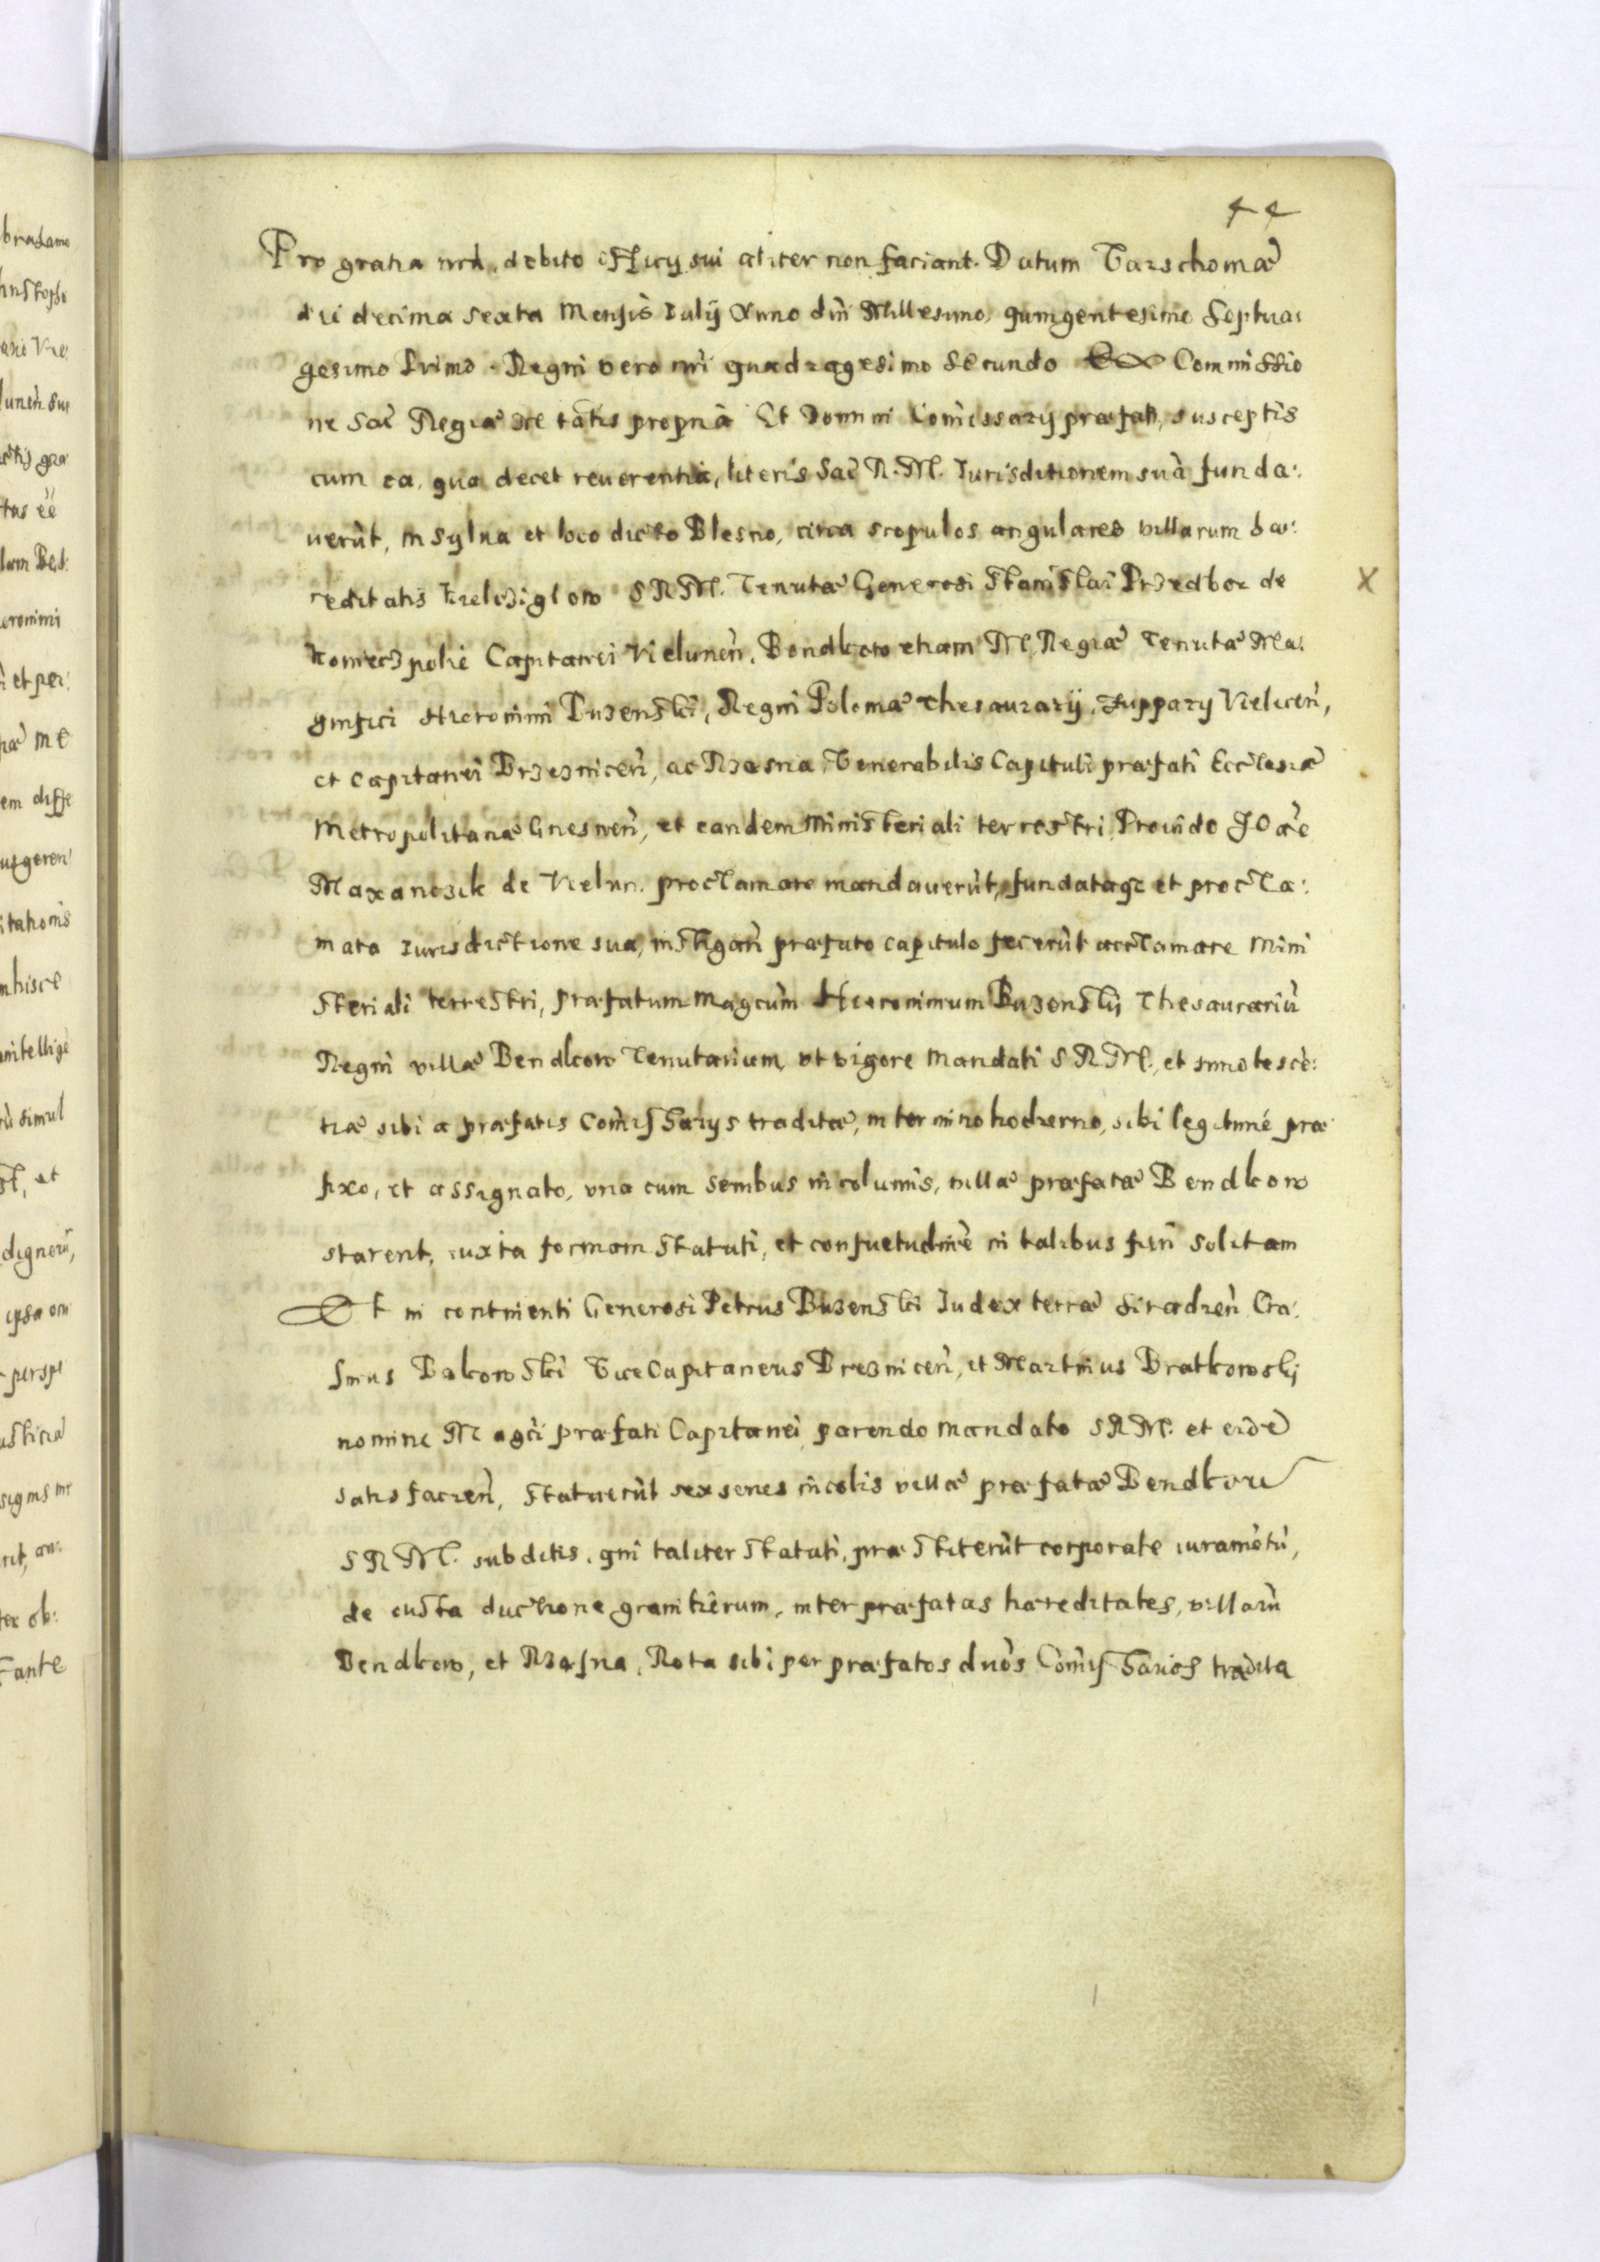 44
Pro gratia nrà, debito officij sui aliter non faciant. Datum Varschoviæ
die decima sexta Mensis Iulij Anno dni Millesimo, quingentesimo Septua:
gesimo Primo. Regni vero nri quadragesimo secundo Ex Commissio
ne Sac Regiæ Mtatis propria Et Domini Comissarij præfati, susceptis
cum ea, qua decet reverentia, literis Sac R. M. Iurisditionem suà funda:
uerùt, in sylua et loco dicto Blesno, circa scopulos angulares villarum hæ:
reditatis Kielczigłow S R M. Tenutæ Generosi Stanislai Przedbor de
Koniecz polie Capitanei Vielunen, Bendkow etiam M. Regiæ Tenutæ Ma:
gnifici Hieronimi Buzenski, Regni Poloniæ Thesaurarij, Zupparij Vielicen,
et Capitanei Brzeznicen, ac Rzasnia, Venerabilis Capituli præfati Ecclesiæ
Metropolitanæ Gnesnen, et eandem Ministeriali terrestri, Prouido Joae
Maxanczik de Vielun. proclamare mandauerùt, fundataqz et procla:
mata Iurisdictione sua, instigan præfato capitulo fecerùt acclamare Mini
steriali terrestri, præfatum Magcùm Hieronimum Buzenskij Thesaurariù
Regni villæ Bendkow Tenutarium, vt vigore mandati S R M., et innotescè:
tiæ sibi a præfatis Comissarys traditæ, in termino hodierno, sibi legitimé præ
fixo, et assignato, vna cum senibus incolumis, villæ præfatæ Bendkow
starent, iuxta formam statuti, et consuetudinè in talibus fieri solitam
Et in continenti Generosi Petrus Buzenski Iudex terræ Siradien, Era:
smus Bakowski ViceCapitaneus Brezni cen, et Martinus Bratkowskij
nomine Magci præfati Capitanei parendo mandato S R M. et eidè
satisfacien, statuerùt sex senes incolis villæ præfatæ Bendkow
S R M. subditis, qui taliter statuti, præstiterùt corporale iuramètù,
de iusta ductione granitierum, inter præfatas hæreditates, villarù
Bendkow, et Rzasna, Rota sibi per præfatos dnos Comissarios tradita